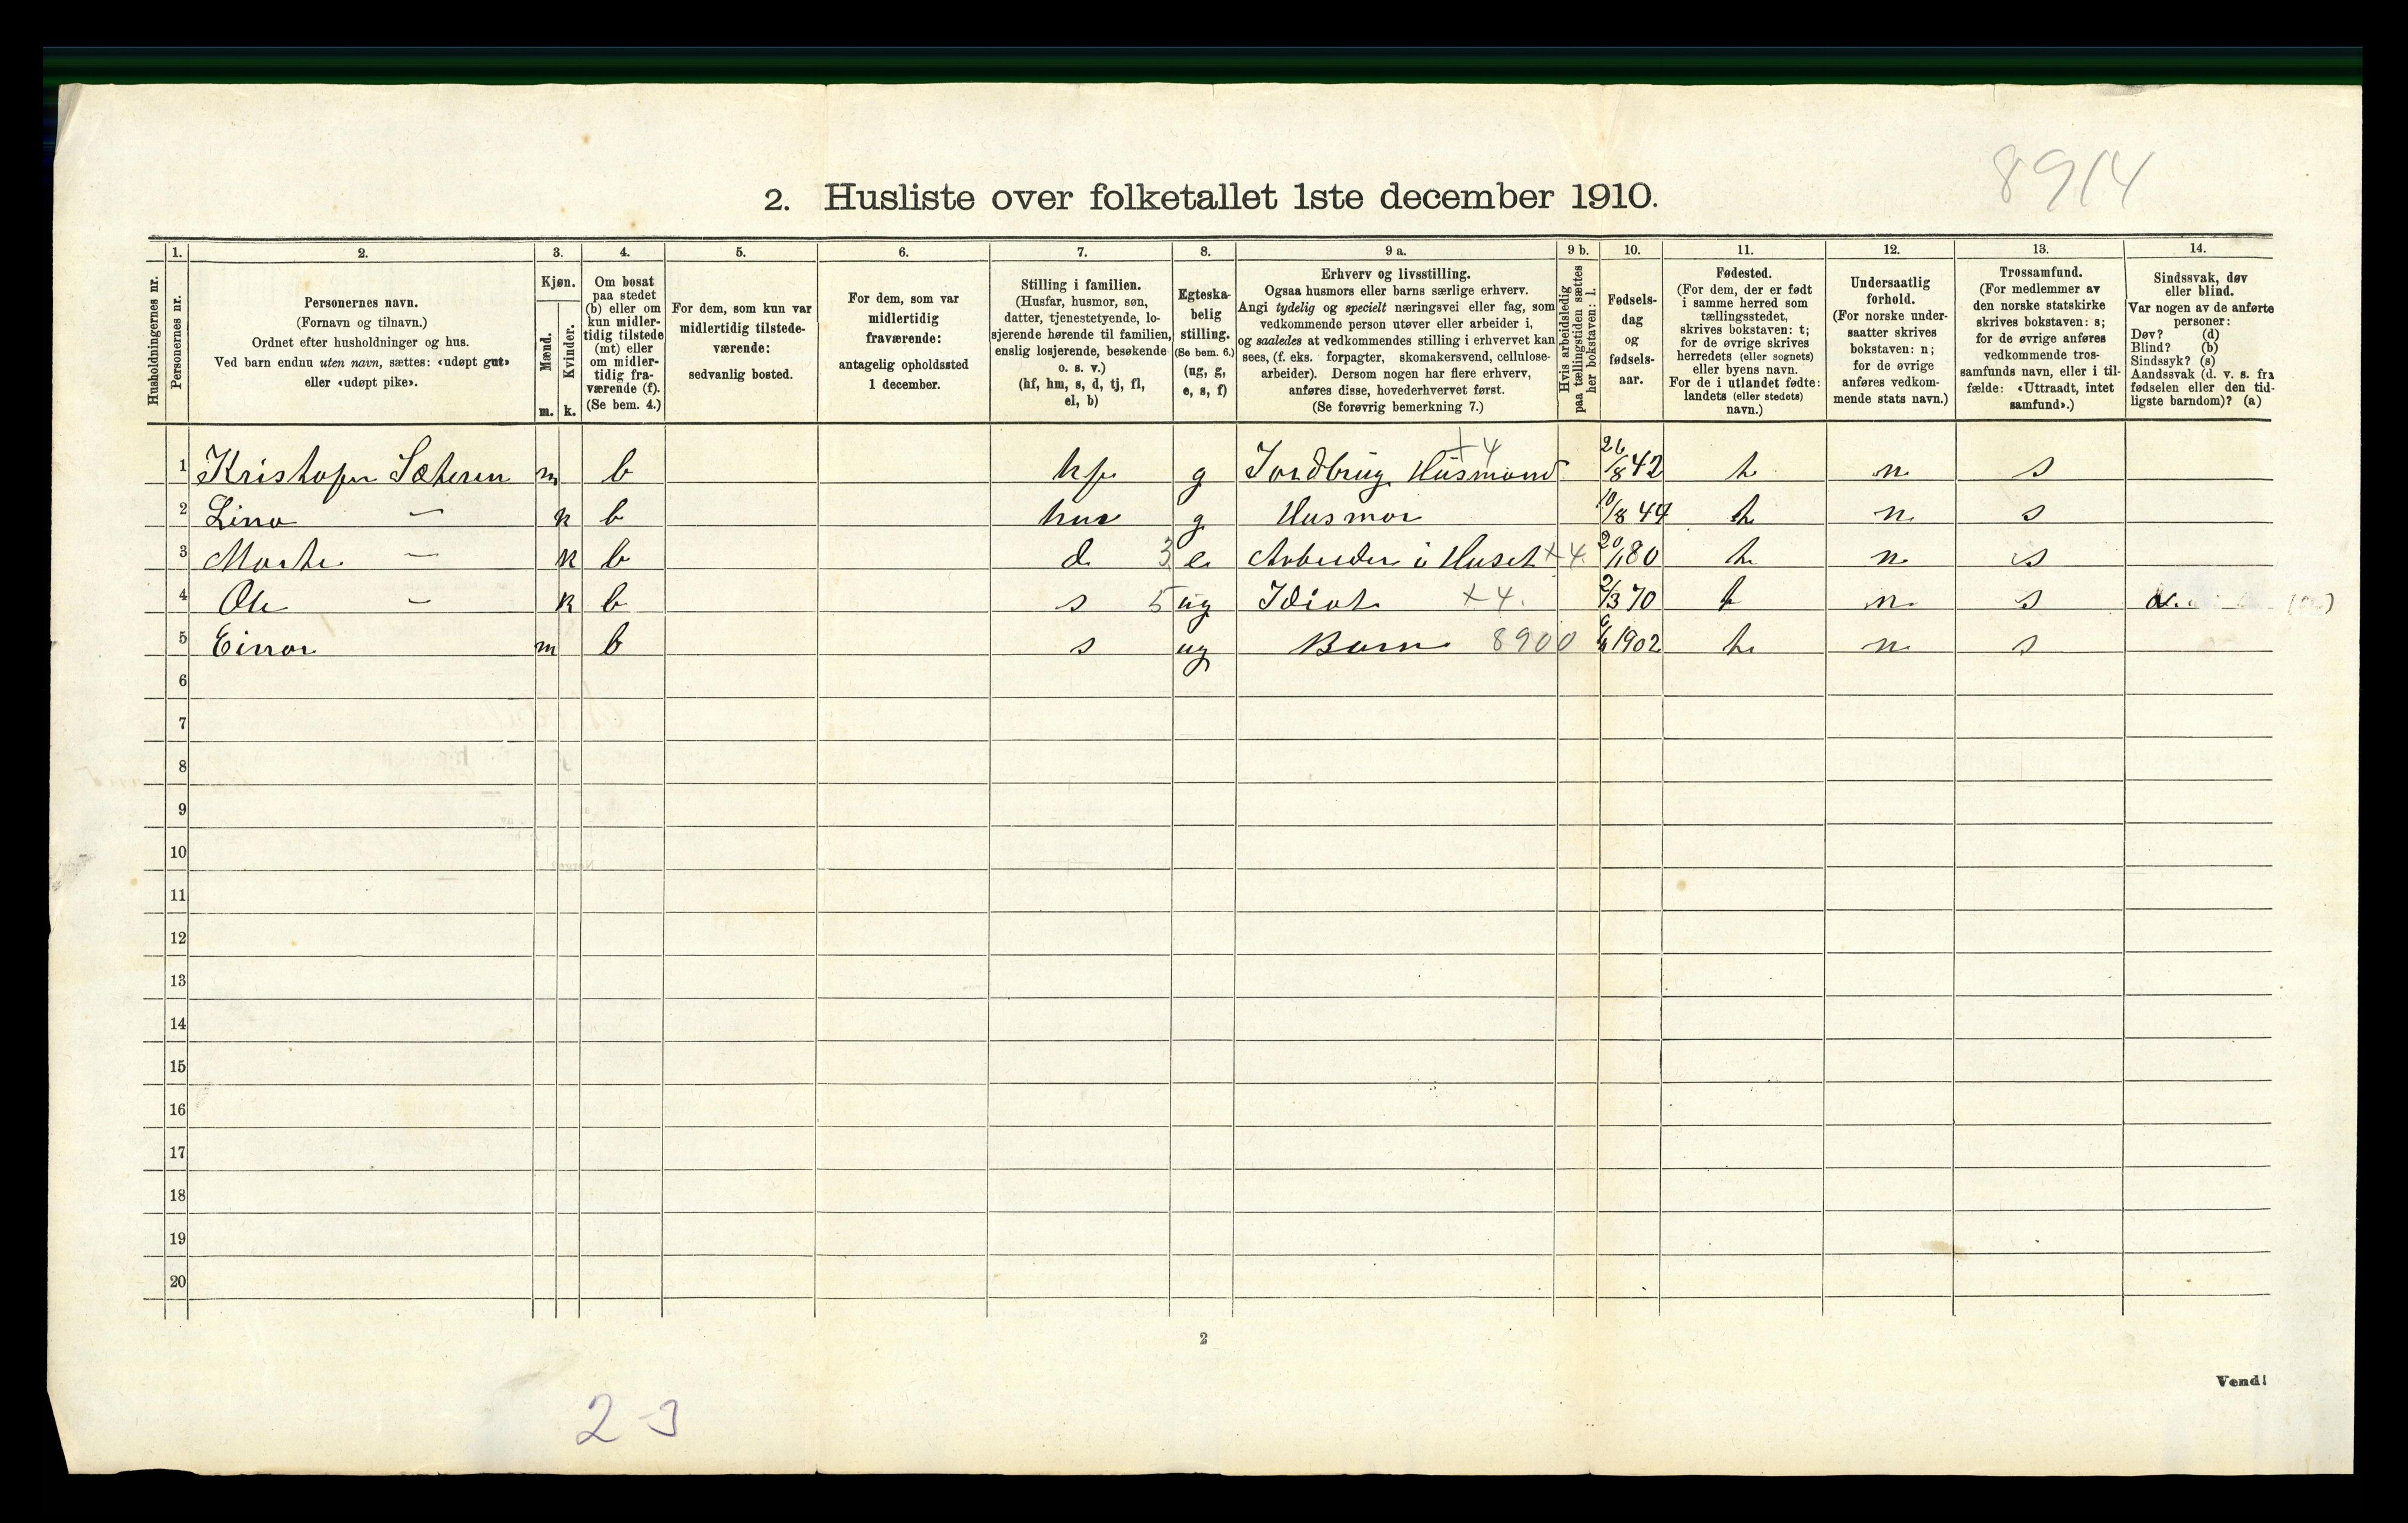 8914
2. Husliste over folketallet 1ste december 1910.
Husholdningernes nr.
1.
Personernes nr.
2.
Personernes navn.
(Fornavn og tilnavn.)
Ordnet efter husholdninger og hus.
Ved barn endnu uten navn, sættes: «udøpt gut»
eller «udøpt pike».
3.
Kjøn.
Mænd.
m.
Kvinder.
k.
4.
Om bosat
paa stedet
(b) eller om
kun midler-
tidig tilstede
(mt) eller
om midler-
tidig fra-
værende (f).
(Se bem. 4.)
5.
For dem, som kun var
midlertidig tilstede-
værende:
sedvanlig bosted.
6.
For dem, som var
midlertidig
fraværende:
antagelig opholdssted
1 december.
7.
Stilling i familien.
(Husfar, husmor, søn,
datter, tjenestetyende, lo-
sjerende hørende til familien,
enslig losjerende, besøkende
o. s. v.)
(hf, hm, s, d, tj, fl,
el, b)
8.
Egteska-
belig
stilling.
(Se bem. 6.)
(ug, g,
e, s, f)
9 a.
Erhverv og livsstilling.
Ogsaa husmors eller barns særlige erhverv.
Angi tydelig og specielt næringsvei eller fag, som
vedkommende person utøver eller arbeider i,
og saaledes at vedkommendes stilling i erhvervet kan
sees, (f. eks. forpagter, skomakersvend, cellulose-
arbeider). Dersom nogen har flere erhverv,
anføres disse, hovederhvervet først.
(Se forøvrig bemerkning 7.)
9 b.
Hvis arbeidsledig
paa tællingstiden sættes
her bokstaven: l.
10.
Fødsels-
dag
og
fødsels-
aar.
11.
Fødested.
(For dem, der er født
i samme herred som
tællingsstedet,
skrives bokstaven: t;
for de øvrige skrives
herredets (eller sognets)
eller byens navn.
For de i utlandet fødte:
landets (eller stedets)
navn.)
12.
Undersaatlig
forhold.
(For norske under-
saatter skrives
bokstaven: n;
for de øvrige
anføres vedkom-
mende stats navn.)
13.
Trossamfund.
(For medlemmer av
den norske statskirke
skrives bokstaven: s;
for de øvrige anføres
vedkommende tros-
samfunds navn, eller i til-
fælde: «Uttraadt, intet
samfund».)
14.
Sindssvak, døv
eller blind.
Var nogen av de anførte
personer:
Døv? (d)
Blind? (b)
Sindssyk? (s)
Aandssvak (d. v. s. fra
fødselen eller den tid-
ligste barndom)? (a)
1 Kristofer Sæteren m b hf g Jordbrug Husmand +4 26/8 42 t n s
2 Lina — k b hm g Husmor 10/8 44 t n s
3 Marte — k b d 3 e Arbeider i Huset +4 20/1 80 t n s
4 Ole — k b s 5 ug Idiot +4. 2/3 70 t n s a.
5 Einar m b s ug Barn 8900 1902 t n s
6
7
8
9
10
11
12
13
14
15
16
17
18
19
20
2
Vend!
2-3